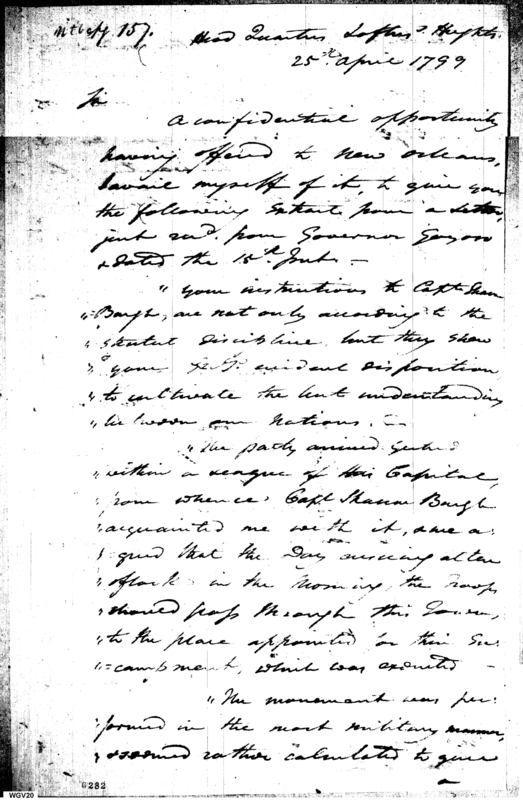 157.
Head Quarters Loftus Heights.
25th April 1799
Sir
A confidential opportunity
having offered to New Orleans,
I avail myself of it, to give you
the following Extract from a Letter,
just recd. from Governor Gayoso
& dated the 15th Inst. —
"your instructions to Capt. Shaum
"Burgh, are not only according to the
"strictest discipline but they shew
"your evident disposition
"to cultivate the best understanding
"between our Nations. —
"The party arrived
"within a League of this Capital,
"from whence Capt Shaum Burgh
"acquainted me with it, and a
"greed that the Day ensuing at ten
"oClock in the Morning, the Troops
"should pass through this Town,
"to the place appointed for their En
"=campment, which was executed —
"The movement was per
"formed in the most military manner,
"& seemed rather calculated to give
a
0282
WGV20